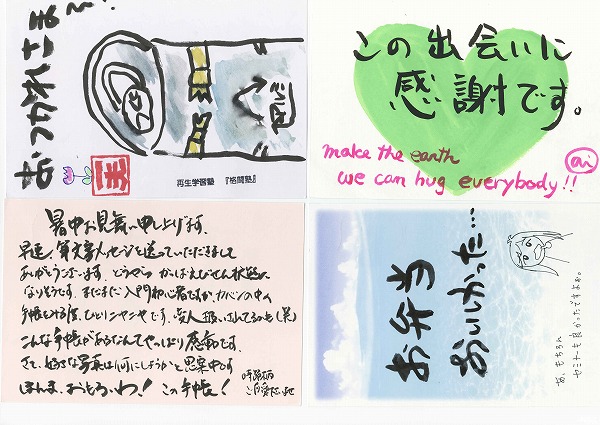 おつかれさま〜!
再生学習塾 『格闘塾』
この出会いに
感謝です。
make the earth
we can hug everybody!!
ai
暑中お見舞い申し上げます。
早速、筆文字メッセージを送っていただきまして
ありがとうございます。どうやら かっぱえびせん状態に
なりそうです。まだまだ入門初心者ですが、カバンの中の
手帳を
こんな手帳があるなんてやっぱり感動です。
さて、好きな写真は何にしようかと思案中です
ほんま、おもろいわ! この手帳!
時節柄
ご自愛
お弁当
おいしかった…
あ、もちろん
セミナーも良かったですよぉ。